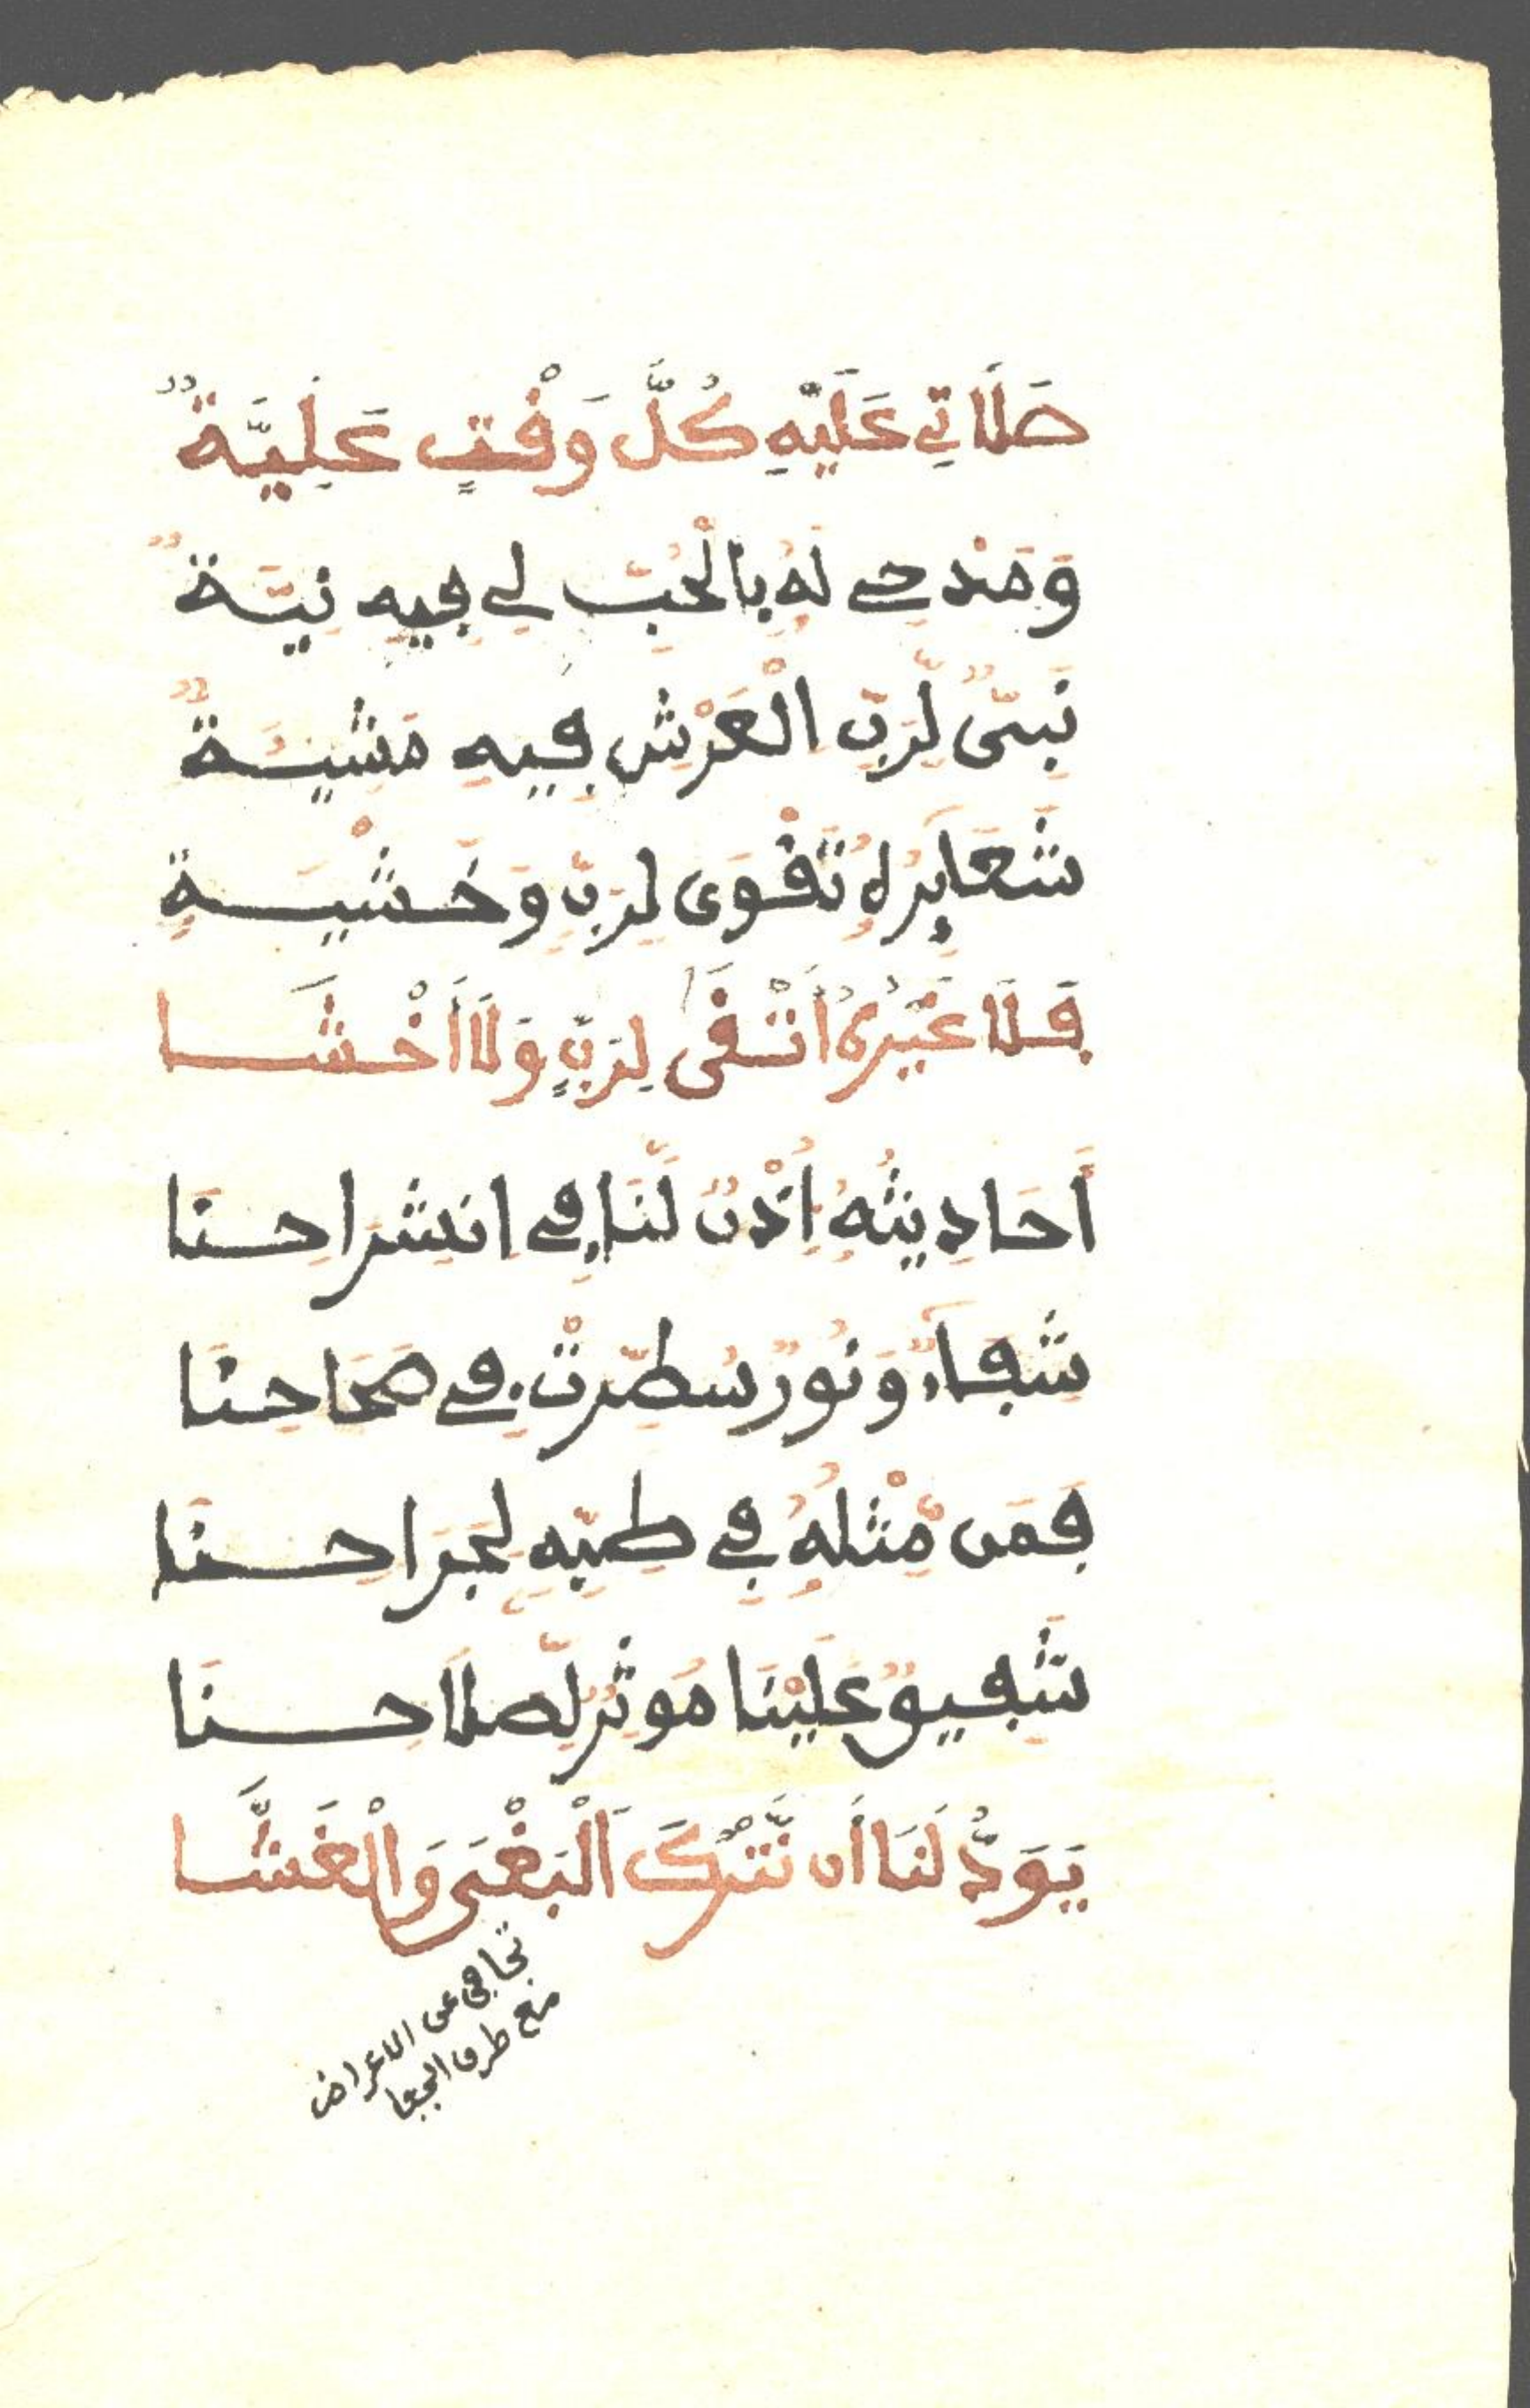 صَلَاتِي عَلَيْهِ كُلَّ وَقْتٍ عَلِيَّةٌ
وَمَدْحِي لَهُ بِالْحُبِّ لِي فِيهِ نِيَّةٌ
نَبِيٌّ لِّرَبِّ الْعَرْشِ فِيهِ مَشِيئَةٌ
شَعَايِرُهُ تَقْوَى لِرَبِّ وَخَشْيَةِ
فَلَا غَيْرُهُ أَتْقَى لِرَبٍّ وَلَا أَخْشَا
أَحَادِيثُهُ إِذْنٌ لَّنَا فِي انْشِرَاحِنَا
شِفَاءٌ وَنُورٌ سُطِّرَتْ فِي صِحَاحِنَا
فَمَن مِّثْلُهُ فِي طِبِّهِ لِجِرَاحِنَا
شَفِيقٌ عَلَيْنَا مُوثِرٌ لِّصَلَاحِنَا
يَوَدُّ لَنَا أَن نَّتْرُكَ الْبَغْيَ وَالْغَشَّا
تجافى عن الاعراض
مع طرق الجفا